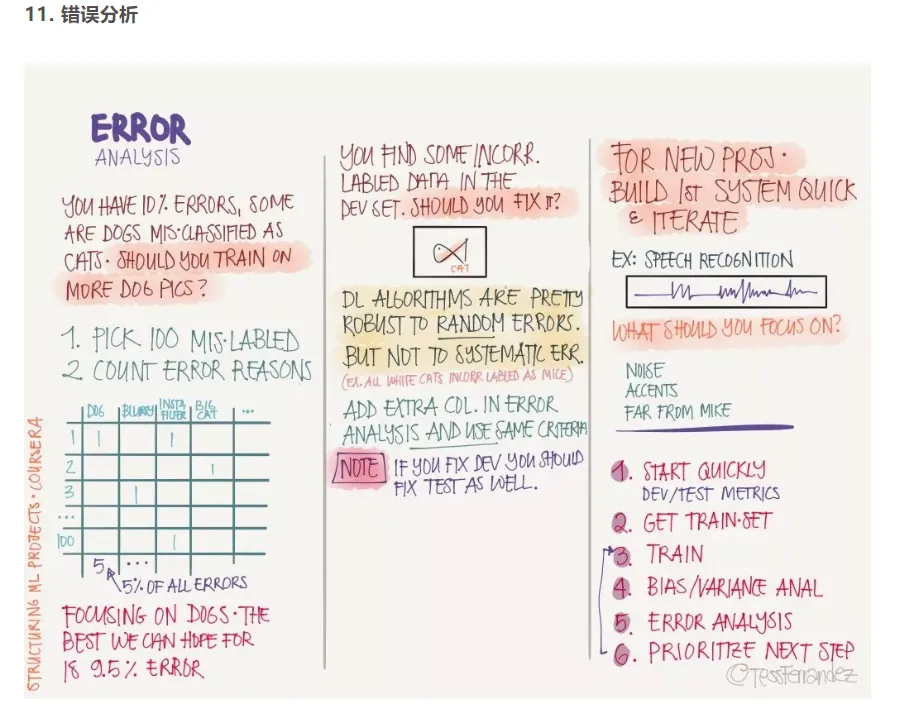 11. 错误分析
ERROR
ANALYSIS
YOU HAVE 10% ERRORS, SOME
ARE DOGS MIS·CLASSIFIED AS
CATS· SHOULD YOU TRAIN ON
MORE DOG PICS?
1. PICK 100 MIS·LABLED
2 COUNT ERROR REASONS
DOG BLURRY INSTA FILTER BIG CAT ...
1 1 1
2 1
3 1
...
100 1
5 ...
5% OF ALL ERRORS
FOCUSING ON DOGS·THE
BEST WE CAN HOPE FOR
IS 9.5% ERROR
STRUCTURING ML PROJECTS · COURSERA
YOU FIND SOME INCORR.
LABLED DATA IN THE
DEV SET. SHOULD YOU FIX IT?
CAT
DL ALGORITHMS ARE PRETTY
ROBUST TO RANDOM ERRORS.
BUT NOT TO SYSTEMATIC ERR.
(EX. ALL WHITE CATS INCORR LABLED AS MICE)
ADD EXTRA COL. IN ERROR
ANALYSIS AND USE SAME CRITERIA
NOTE IF YOU FIX DEV YOU SHOULD
FIX TEST AS WELL.
FOR NEW PROJ·
BUILD 1st SYSTEM QUICK
& ITERATE
EX: SPEECH RECOGNITION
WHAT SHOULD YOU FOCUS ON?
NOISE
ACCENTS
FAR FROM MIKE
1. START QUICKLY
DEV/TEST METRICS
2. GET TRAIN·SET
3. TRAIN
4. BIAS/VARIANCE ANAL
5. ERROR ANALYSIS
6. PRIORITIZE NEXT STEP
©TessFerrandez